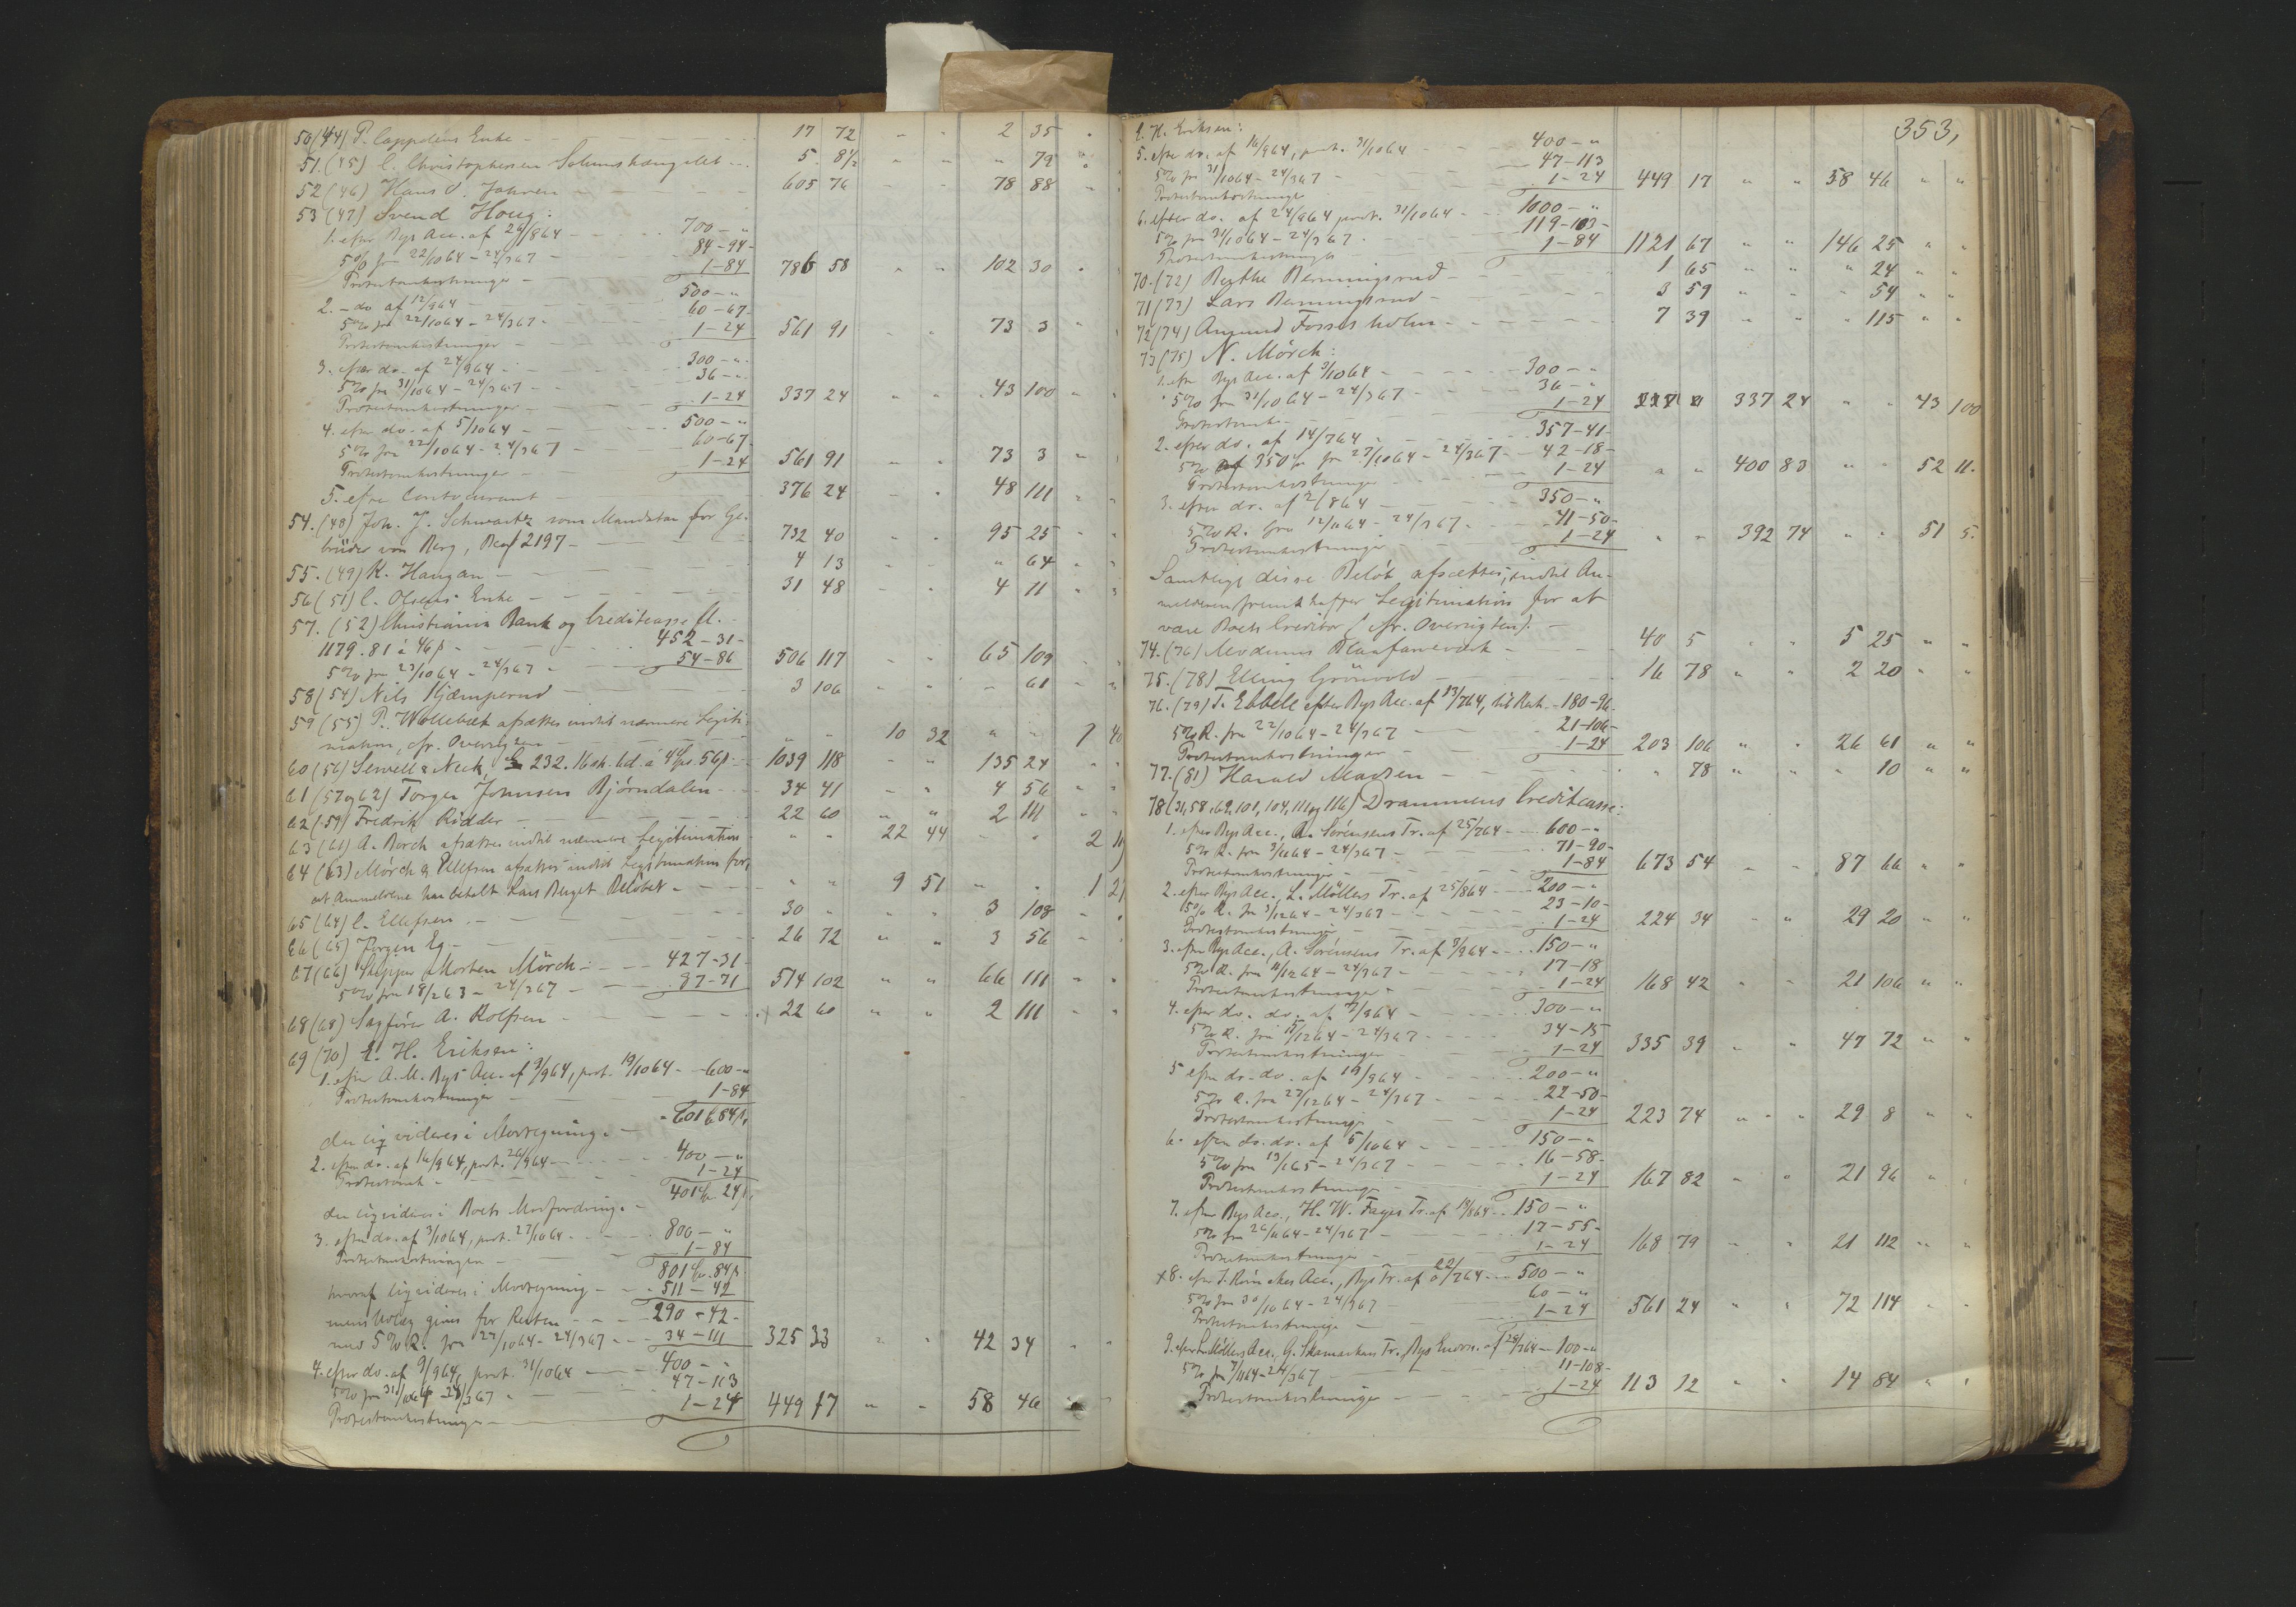 50 (44) P. Cappelens Enke - 17 72 " " 2 35 "
51. (45) C. Christophersen - 5. 8½ " " " 79 "
52 (46) Hans O. - 605 76 - - 78 88 "
53 (47) Svend Houg:
1. efter Rys Acc. af 26/864 - 700 - "
5% fra 22/1064 - 24/367 - 84-94-
Protestomkostninger - 1-84 786 58 " " 102 30 "
2. - do af 12/964 - 500 - "
5% fra 22/1064 - 24/367 - 60-67-
Protestomkostninger - 1-24 561 91 " " 73 3 "
3. efter do. af 24/964 - 300 - "
5% fra 31/1064 - 24/367 - 36 - "
Protestomkostninger - 1-24 337 24 " " 43 100 "
4. efter do. af 5/1064 - 500 - "
5% fra 22/1064 - 24/367 - 60-67-
Protestomkostninger - 1-24 561 91 " " 73 3 "
5. efter Contocurant - 376 24 " " 48 111 " "
54. (48) Joh. J. Schwartz som Mandatar for Ge-
brüder von Berg, 2197 - 732 40 " " 95 25 " "
55. (49) K. Haugan - 4 13 " " " 64 " "
56 (51) C. Olsens Enke - 31 48 " " 4 11 " "
57. (52) Christiania Bank og Creditcasse fl.
1179.81 á 46 β - 452-31-
5% fra 23/1064 - 24/367 - 54-86 506 117 " " 65 109 "
58 (54) Nils Kjæmperud - 3 106 " " " 61 " "
59 (55) P. Wollebæk afsættes indtil nærmere Legiti-
mation, cfr. Oversigten - " " 10 32 " " 1 40
60 (56) Sewell & Neck, £ 232. 16 sh. 6d. á 4 Sp. 56 β - 1039 118 " " 135 24 " "
61 (57 og 62) Torger Johnsen Bjørndalen - 34 41 " " 4 56 " "
62 (59) Fredrik Ridder - 22 60 " " 2 111 " "
63 (61) A. Borch afsættes indtil nærmere Legitimation " " 22 44 " " 2 11
64 (63) Mörch & Ellefsen afsættes indtil Legitimation for,
at Anmelderne har betalt Lars Berget Beløbet - " " 9 51 " " 1 21
65 (64) C. Ellefsen - 30 " " " 3 108 " "
66 (65) Jörgen Eg - 26 72 " " 3 56 " "
67 (66) Skipper Morten Mörch: - 427-31-
5% fra 18/263 - 24/367 - 87-71 514 102 " " 66 111 " "
68 (68) Sagfører A. Rolfsen - 22 60 " " 2 111 " "
69 (70) E. H. Eriksen:
1. efter A. M. Rys Acc. af 3/964, prot. 19/1064 - 600 - "
Protestomkostninger - 1-84
der liqvideres i Modregning. - 601 68 4 β
2. efter do. af 16/964, prot. 26/964 - 400 - "
Protestomk - 1-24
der liqvideres i Boets Modfordring. - 401 Sp 24 β
3. efter do. af 3/1064, prot. 27/1064 - 800 - "
Protestomkostninger - 1-84
801 Sp. 84 β
hvoraf liqvideres i Modregning - 511-42
mens Udlæg gives for Resten - 290-42-
med 5% R. fra 27/1064 - 24/367 - 34-111 325 33 " " 42 34 " "
4. efter do. af 9/964, prot. 31/1064 - 400 - "
5% fra 31/1064 - 24/367 - 47-113
Protestomkostninger - 1-24 449 17 " " 58 46 " "
353,
E. H. Eriksen:
5. efter do. af 16/964, prot. 31/1064 - 400 - "
5% fra 31/1064 - 24/367 - 47-113
Protestomkostninger 1-24 449 17 " " 58 46 " "
6. efter do. af 24/964 prot. 31/1064 - 1000 - "
5% fra 31/1064 - 24/367 - 119-103-
Protestomkostninger 1-84 1121 67 " " 146 25 " "
70. (72) Berthe Berningsrud - 1 65 " " " 24 " "
71 (73) Lars Berningsrud - 3 59 " " " 54 " "
72 (74) Amund Fossesholm - 7 39 " " " 115 " "
73 (75) N. Mörch:
1. efter Rys Acc. af 3/1064 - 300 - "
5% fra 31/1064 - 24/367 - 36 - "
Protestomk - 1-24 337 24 " " 43 100
2. efter do. af 14/764 - 357-41-
5% af 350 Sp fra 27/1064 - 24/367 - 42-18-
Protestomkostninger - 1-24 " " 400 83 " " 52 11.
3. efter do. af 2/864 - 350 - "
5% R. fra 12/1164 - 24/367 - 41-50-
Protestomkostninger 1-24 " " 392 74 " " 51 5.
Samtlige disse Beløb afsættes, indtil An-
melderen fremskaffer Legitimation for at
være Boets Creditor (cfr. Oversigten). -
74. (76) Modums Blaafarveværk - 40 5 " " 5 25 " "
75. (78) Elling Grönvold - 16 78 " " 2 20 " "
76. (79) T. Ebbell efter Rys Acc. af 13/764, - 180-96-
5% R. fra 22/1064 - 24/367 - 21-106-
Protestomkostninger - 1-24 203 106 " " 26 61 " "
77. (81) Harald Madsen - " 78 " " " 10 " "
78 (31, 58, 69, 101, 104, 111 og 116) Drammens Creditcasse:
1. efter Rys Acc., A. Sörensens Tr. af 25/764 - 600 - "
5% R. fra 3/1164 - 24/367 - 71-90-
Protestomkostninger - 1-84 673 54 " " 87 66 " "
2. efter Rys Acc., L. Möllers Tr. af 25/864 - 200 - "
5% R. fra 3/1264 - 24/367 - 23-10-
Protestomkostninger - 1-24 224 34 " " 29 20 " "
3. efter Rys Acc., A. Sörensens Tr. af 9/964 - 150 - "
5% R. fra 11/1264 - 24/367 - 17-18
Protestomkostninger - 1-24 168 42 " " 21 106 " "
4. efter do. do. af 7/964 - 300 - "
5% R. fra 15/1264 - 24/367 - 34-15
Protestomkostninger - 1-24 335 39 " " 47 72 " "
5 efter do. do. af 19/964 - 200 - "
5% R. fra 27/1264 - 24/367 - 22-50-
Protestomkostninger - 1-24 223 74 " " 29 8 " "
6. efter do. do. af 5/1064 - 150 - "
5% fra 13/165 - 24/367 - 16-58-
Protestomkostninger - 1-24 167 82 " " 21 96 " "
7. efter Rys Acc., H. W. Fayes Tr. af 19/864 - 150 - "
5% fra 26/1164 - 24/367 - 17-55-
Protestomkostninger - 1-24 168 79 " " 21 112 " "
+8. efter J. Acc., Rys Tr. af 22/764 - 500 - "
5% fra 30/1064 - 24/367 - 60 - "
Protestomkostninger - 1-24 561 24 " " 72 114 " "
9. efter L. Möllers Acc., G. Tr., Rys Endoss. af 29/764 - 100 - "
5% fra 7/1164 - 24/367 - 11-108-
Protestomkostninger - 1-24 113 12 " " 14 84 " "